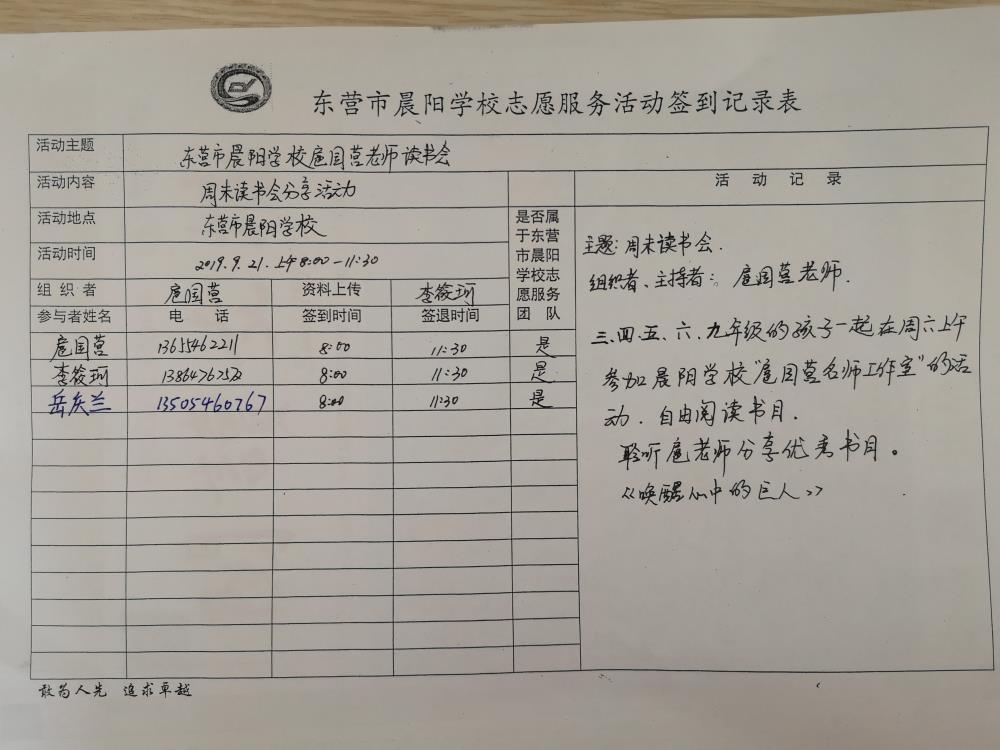 东营市晨阳学校志愿服务活动签到记录表
活动主题 东营市晨阳学校扈国营老师读书会
活动内容 周末读书会分享活动
活动地点 东营市晨阳学校
活动时间 2019.9.21.上午8:00-11:30
组织者 扈国营 资料上传 李筱珂
参与者姓名 电话 签到时间 签退时间
是否属
于东营
市晨阳
学校志
愿服务
团队
扈国营 13655462211 8:00 11:30 是
李筱珂 8:00 11:30 是
岳庆兰 13505460767 8:00 11:30 是
活动记录
主题:周末读书会.
组织者、主持者:扈国营老师.
三.四.五.六.九年级的孩子一起在周六上午
参加晨阳学校"扈国营名师工作室"的活
动.自由阅读书目.
聆听扈老师分享优秀书目。
《唤醒心中的巨人》
敢为人先 追求卓越